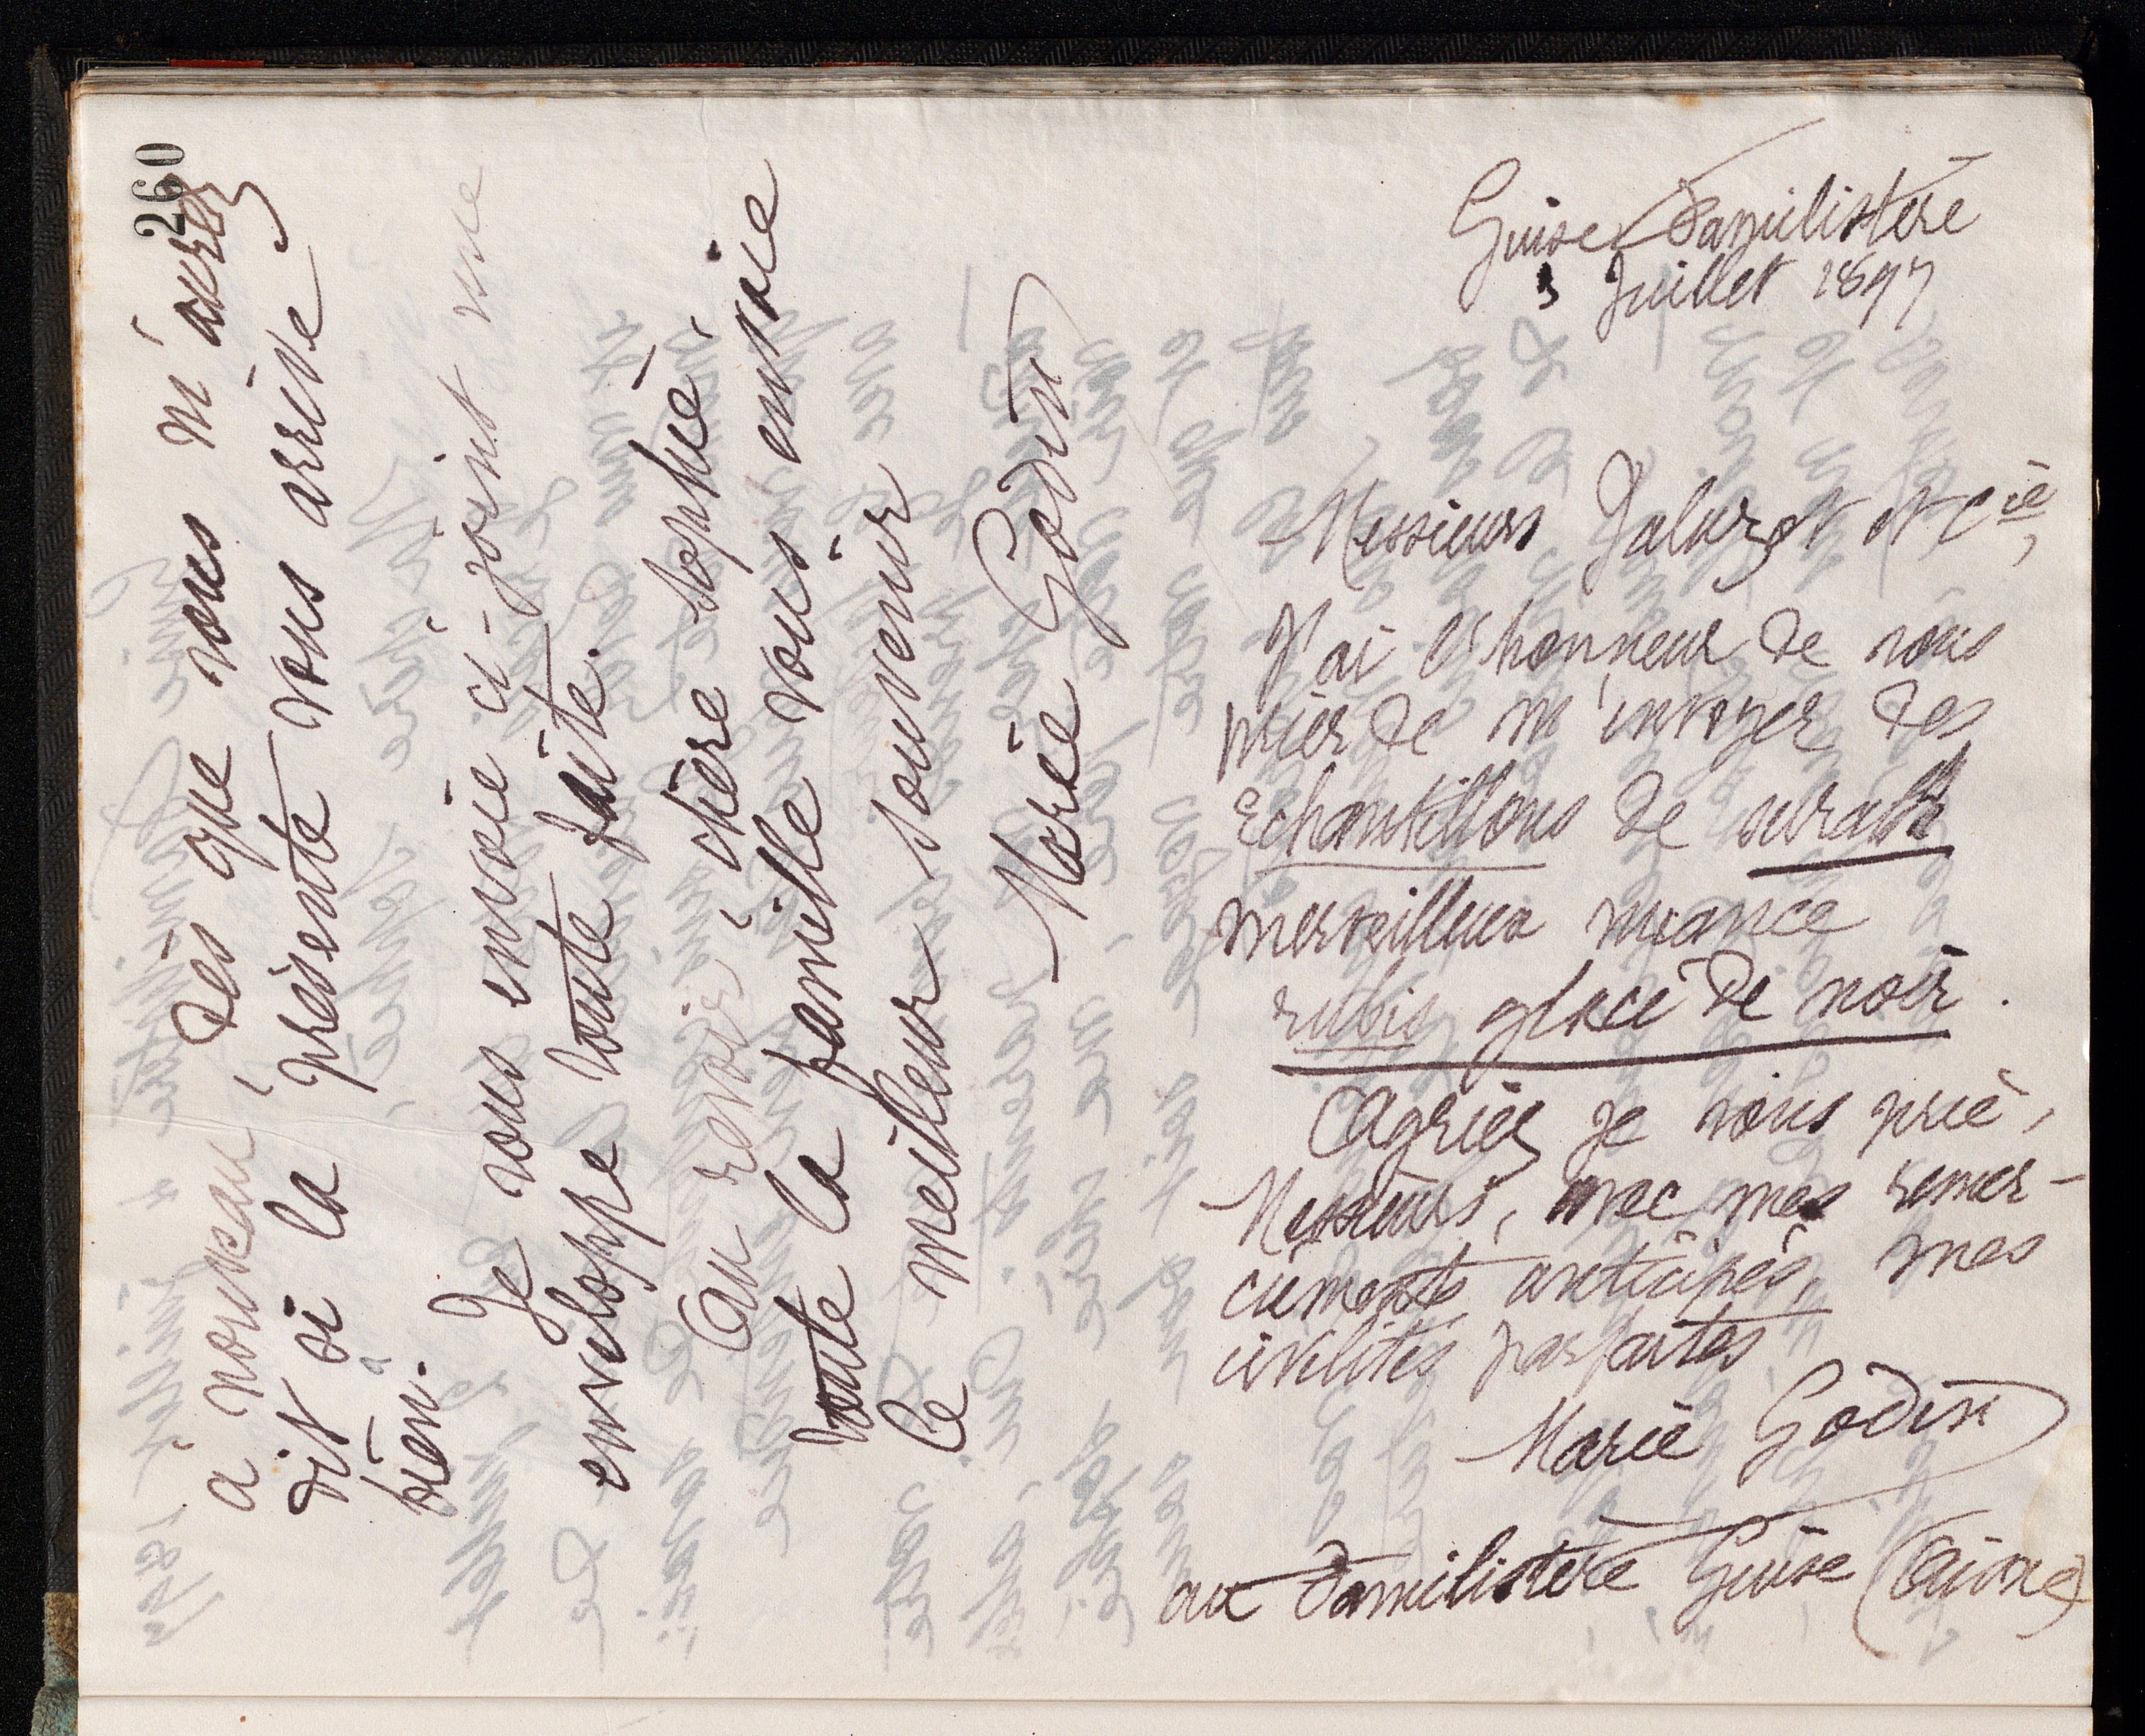 260
à nouveau dès que vous m'aurez
dit si la présente vous arrive
bien.
Je vous envoie ci-joint une
enveloppe toute faite.
Au revoir, chère Sophie,
toute la famille vous envoie
le meilleur souvenir
Marie Godin
Guise Familistère
3 Juillet 1897
Messieurs Jaluzot et Cie,
J'ai l'honneur de vous
prier de m'envoyer des
échantillons de surah
merveilleux nuance
rubis glacé de noir.
Agréez je vous prie,
Messieurs, avec mes remer-
ciements anticipés, mes
civilités parfaites
Marie Godin
au Familistère Guise (Aisne)